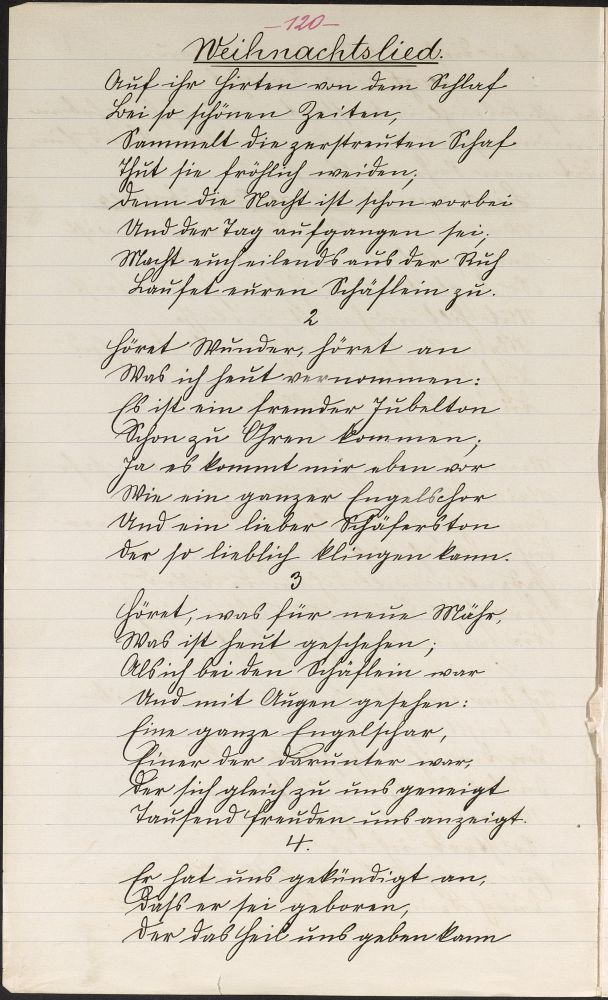 –120–
Weihnachtslied.
Auf ihr Hirten von dem Schlaf
Bei so schönen Zeiten,
Sammelt die zerstreuten Schaf
Thut sie fröhlich weiden;
Denn die Nacht ist schon vorbei
Und der Tag aufgangen sei;
Macht euch eilends aus der Ruh
Laufet euren Schäflein zu.
2
Höret Wunder, höret an
Was ich heut vernommen:
Es ist ein fremder Jubelton
Schon zu Ohren kommen;
Ja es kommt mir eben vor
Wie ein ganzer Engelschor
Und ein lieber Schäferston
Der so lieblich klingen kann.
3
Höret, was für neue Mähr,
Was ist heut geschehen;
Als ich bei den Schäflein war
Und mit Augen gesehen:
Eine ganze Engelschar,
Einer der darunter war,
Der sich gleich zu uns geneigt
Tausend Freuden uns anzeigt.
4.
Er hat uns gekündigt an,
Dass er sei geboren,
Der das Heil uns geben kann